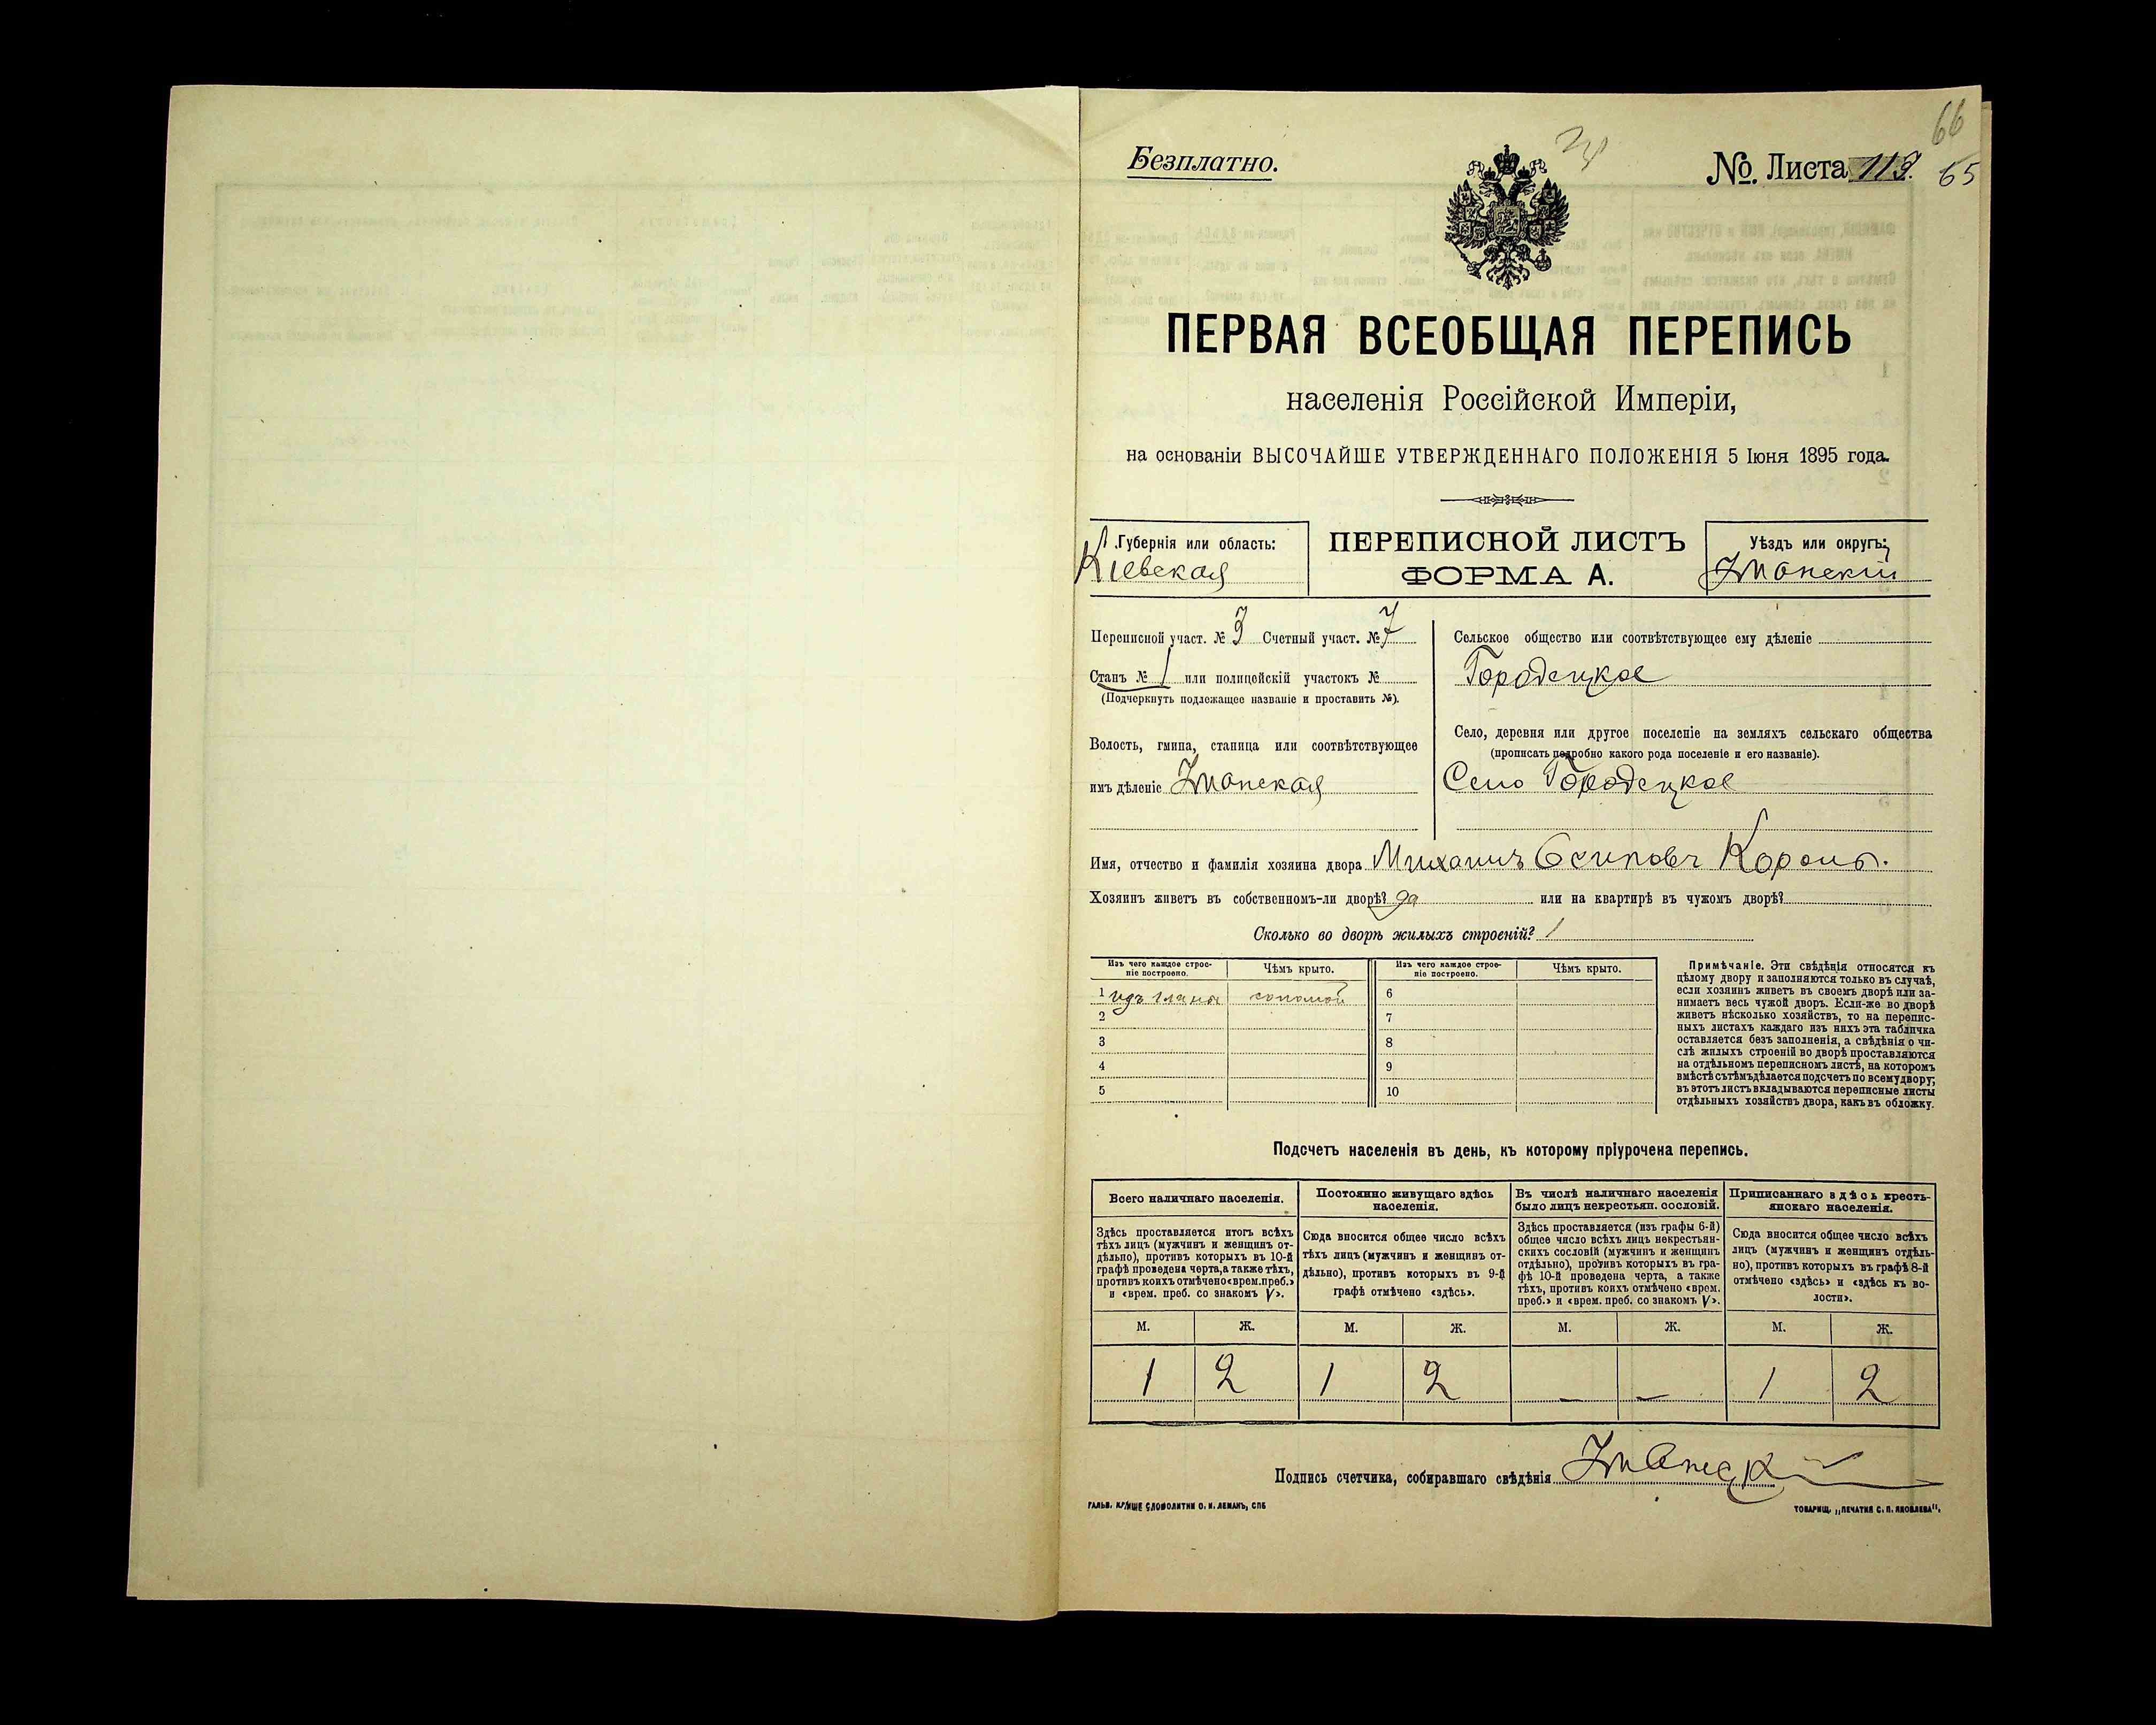 66
Безплатно.
№ Листа 113. 65
ПЕРВАЯ ВСЕОБЩАЯ ПЕРЕПИСЬ
населенія Россійской Имперіи,
на основаніи ВЫСОЧАЙШЕ УТВЕРЖДЕННАГО ПОЛОЖЕНІЯ 5 Іюня 1895 года.
Губернія или область:
Кіевская
ПЕРЕПИСНОЙ ЛИСТЪ
ФОРМА А.
Уѣздъ или округъ:
Уманскій
Переписной участ. № 3 Счетный участ. № 7
Станъ № 1 или полицейскій участокъ №
(Подчеркнуть подлежащее названіе и проставить №).
Волость, гмина, станица или соотвѣтствующее
имъ дѣленіе Уманская
Сельское общество или соотвѣтствующее ему дѣленіе
Городецкое
Село, деревня или другое поселеніе на земляхъ сельскаго общества
(прописать подробно какого рода поселеніе и его названіе).
Село Городецкое
Имя, отчество и фамилія хозяина двора Михаилъ Осиповъ Король.
Хозяинъ живетъ въ собственномъ-ли дворѣ? да или на квартирѣ въ чужомъ дворѣ?
Сколько во дворѣ жилыхъ строеній? 1
Изъ чего каждое строе-
ніе построено.
Чѣмъ крыто.
Изъ чего каждое строе-
ніе построено.
Чѣмъ крыто.
1 изъ глины соломой 6
2 7
3 8
4 9
5 10
Примѣчаніе. Эти свѣдѣнія относятся къ
цѣлому двору и заполняются только въ случаѣ,
если хозяинъ живетъ въ своемъ дворѣ или за-
нимаетъ весь чужой дворъ. Если-же во дворѣ
живетъ нѣсколько хозяйствъ, то на перепис-
ныхъ листахъ каждаго изъ нихъ эта табличка
оставляется безъ заполненія, а свѣдѣнія о чи-
слѣ жилыхъ строеній во дворѣ проставляются
на отдѣльномъ переписномъ листѣ, на которомъ
вмѣстѣ съ тѣмъ дѣлается подсчетъ по всему двору;
въ этотъ листъ вкладываются переписные листы
отдѣльныхъ хозяйствъ двора, какъ въ обложку.
Подсчетъ населенія въ день, къ которому пріурочена перепись.
Всего наличнаго населенія.
Здѣсь проставляется итогъ всѣхъ
тѣхъ лицъ (мужчинъ и женщинъ от-
дѣльно), противъ которыхъ въ 10-й
графѣ проведена черта, а также тѣхъ,
противъ коихъ отмѣчено «врем. преб.»
и «врем. преб. со знакомъ V».
Постоянно живущаго здѣсь
населенія.
Сюда вносится общее число всѣхъ
тѣхъ лицъ (мужчинъ и женщинъ от-
дѣльно), противъ которыхъ въ 9-й
графѣ отмѣчено «здѣсь».
Въ числѣ наличнаго населенія
было лицъ некрестьян. сословій.
Здѣсь проставляется (изъ графы 6-й)
общее число всѣхъ лицъ некрестьян-
скихъ сословій (мужчинъ и женщинъ
отдѣльно), противъ которыхъ въ гра-
фѣ 10-й проведена черта, а также
тѣхъ, противъ коихъ отмѣчено «врем.
преб.» и «врем. преб. со знакомъ V».
Приписаннаго здѣсь кресть-
янскаго населенія.
Сюда вносится общее число всѣхъ
лицъ (мужчинъ и женщинъ отдѣль-
но), противъ которыхъ въ графѣ 8-й
отмѣчено «здѣсь» и «здѣсь къ во-
лости».
М. Ж. М. Ж. М. Ж. М. Ж.
1 2 1 2 — — 1 2
Подпись счетчика, собиравшаго свѣдѣнія
ТОВАРИЩ. „ПЕЧАТНЯ С. П. ЯКОВЛЕВА".